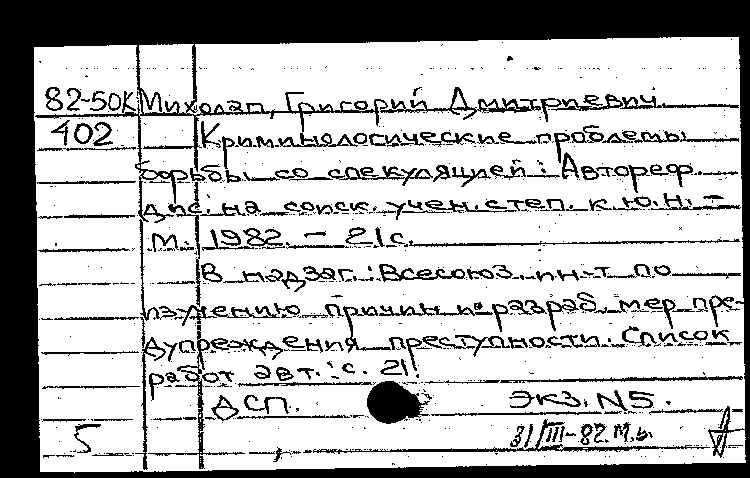 82-50К Михолап, Григорий Дмитриевич.
402 Криминологические проблемы
борьбы со спекуляцией : Автореф.
дис. на соиск. учен. степ. к.ю.н. –
М., 1982. – 21 с.
В надзаг.: Всесоюз. ин-т по
изучению причин и разраб. мер пре-
дупреждения преступности. Список
работ авт.: с. 21.
ДСП. Экз. N5.
5 31/III-82. М.в.